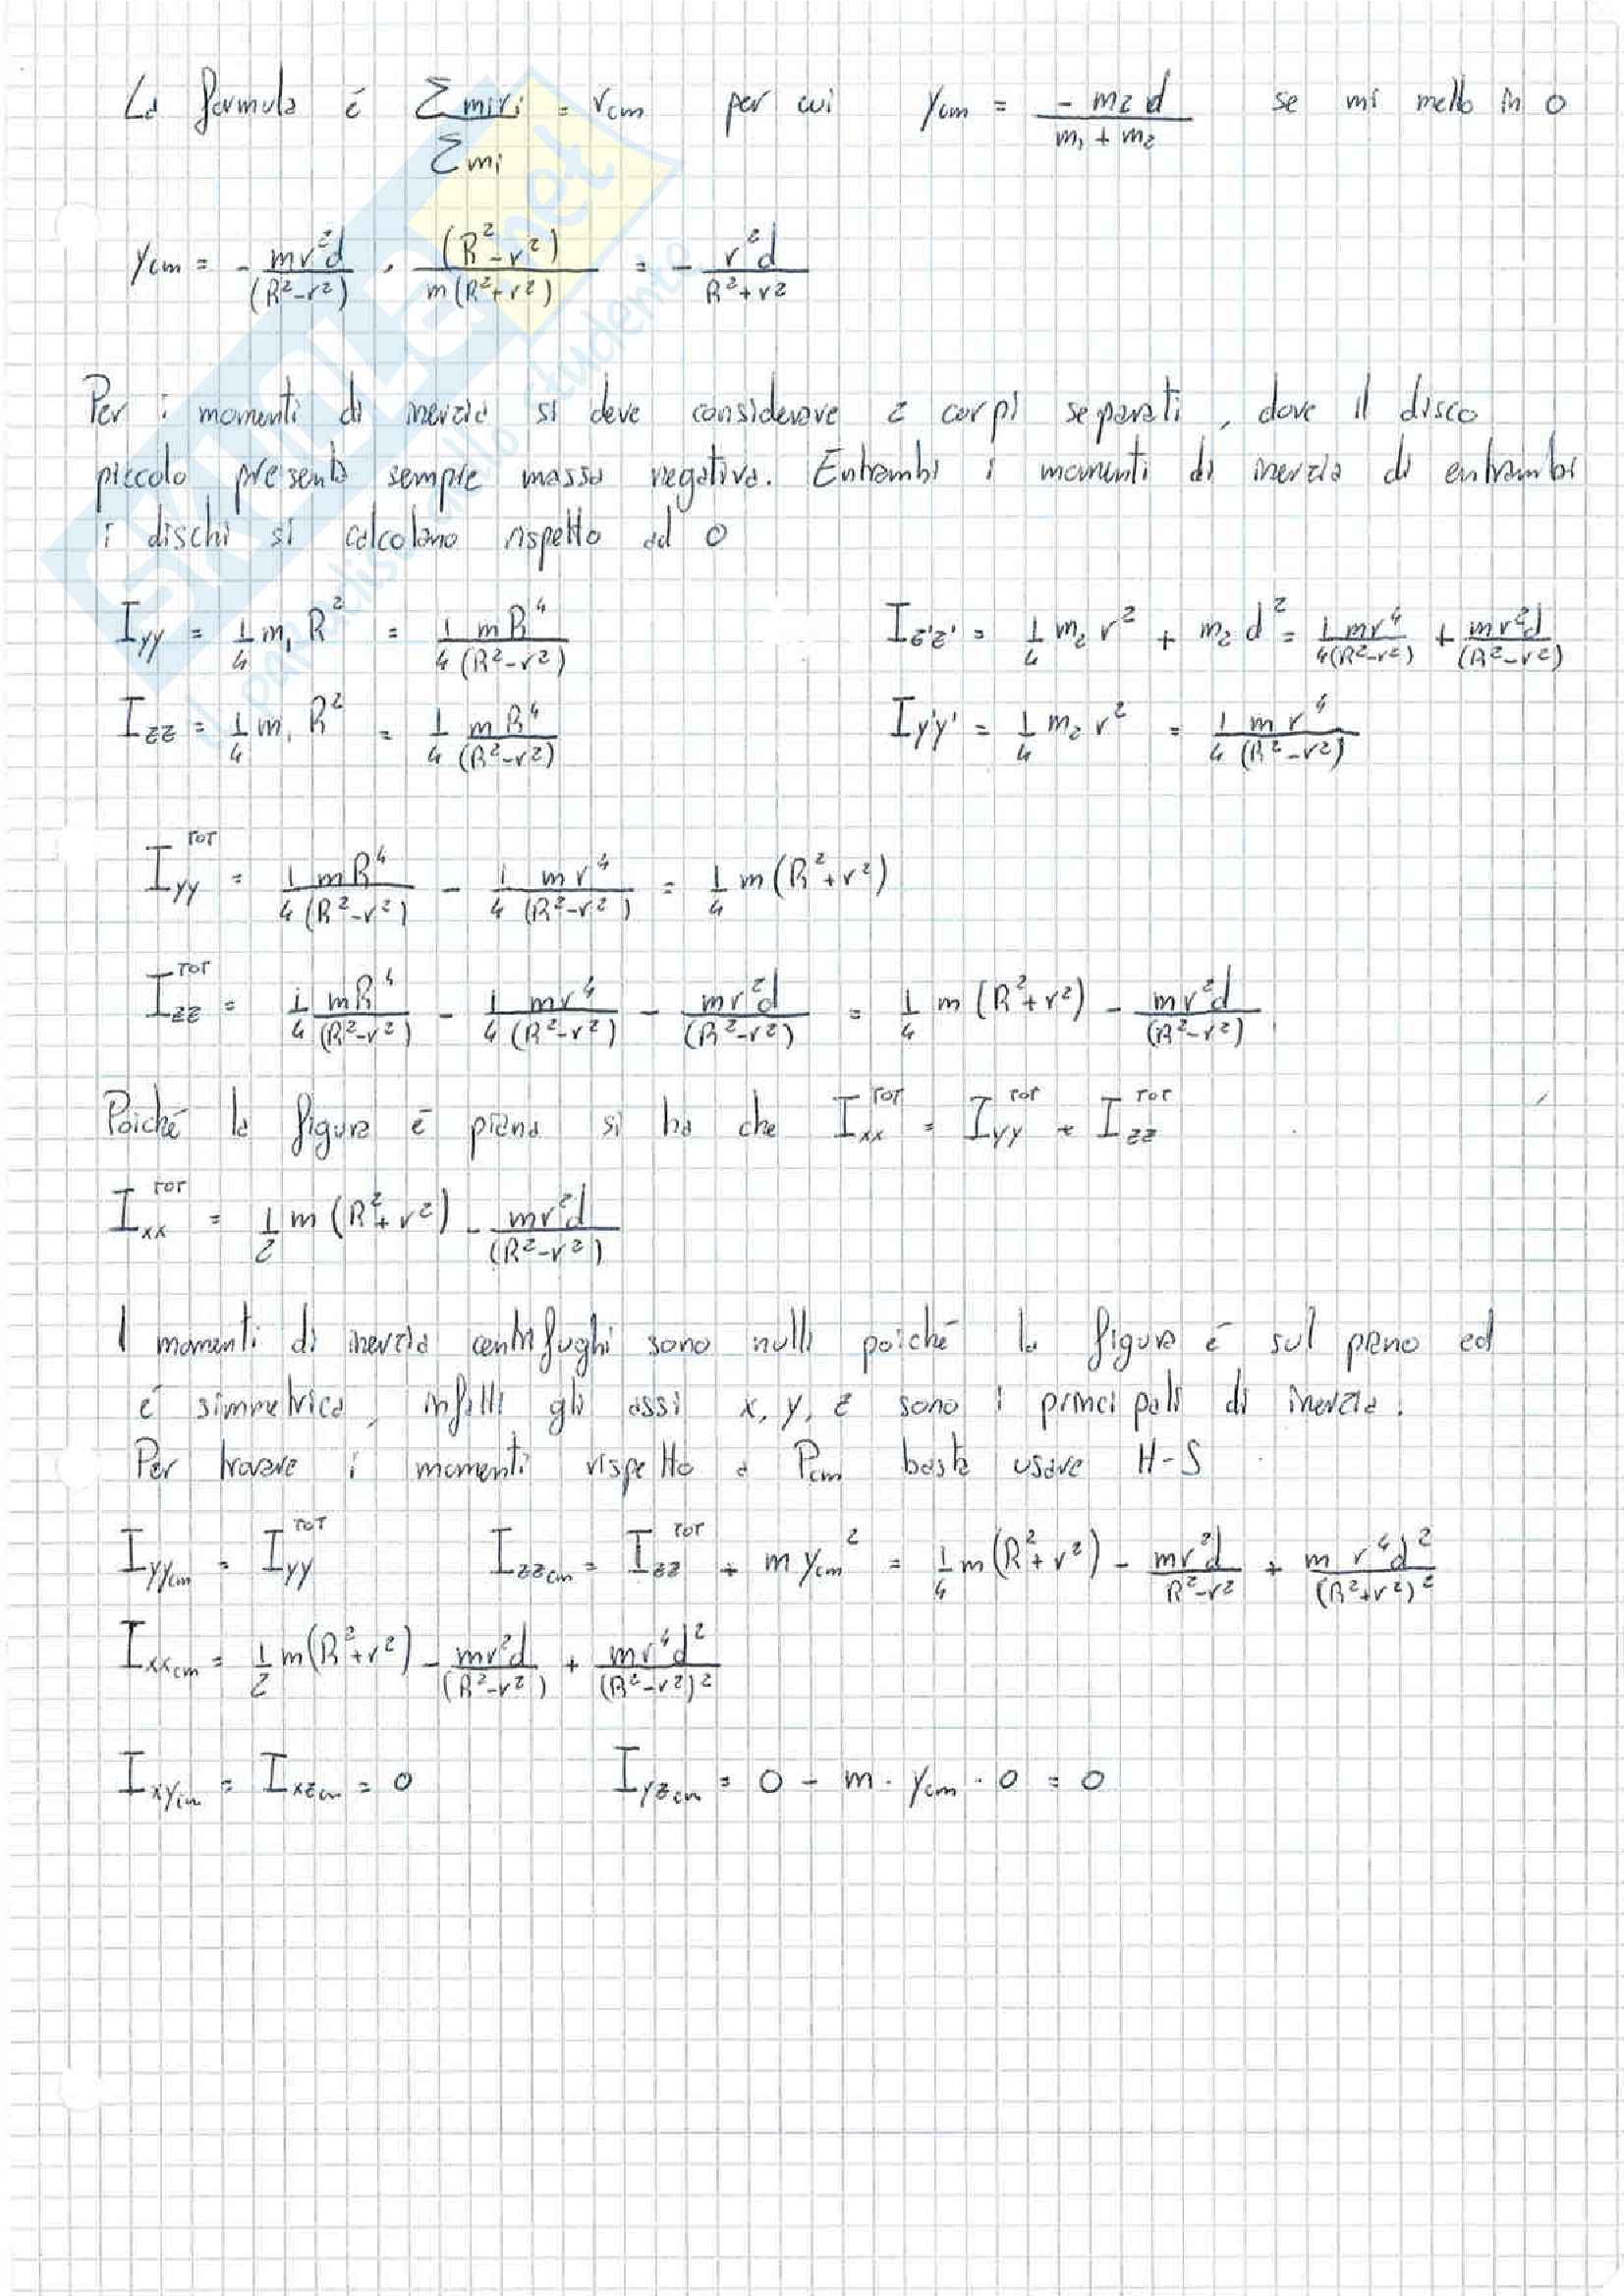 La formula è Σmiri / Σmi = rcm per cui ycm = - m2 d / m1 + m2 se mi metto in O
ycm = - mr²d / (R²-r²) · (R²-r²) / m(R²+r²) = - r²d / R²+r²
Per i momenti di inerzia si deve considerare 2 corpi separati, dove il disco
piccolo presenta sempre massa negativa. Entrambi i momenti di inerzia di entrambi
i dischi si calcolano rispetto ad O
Iyy = 1/4 m1 R² = 1/4 mR⁴/(R²-r²) Iz'z' = 1/4 m2 r² + m2 d² = 1/4 mr⁴/(R²-r²) + mr²d/(R²-r²)
Izz = 1/4 m1 R² = 1/4 mR⁴/(R²-r²) Iy'y' = 1/4 m2 r² = 1/4 mr⁴/(R²-r²)
Iyy^TOT = 1/4 mR⁴/(R²-r²) - 1/4 mr⁴/(R²-r²) = 1/4 m(R²+r²)
Izz^TOT = 1/4 mR⁴/(R²-r²) - 1/4 mr⁴/(R²-r²) - mr²d/(R²-r²) = 1/4 m(R²+r²) - mr²d/(R²-r²)
Poiché la figura è piana si ha che Ixx^TOT = Iyy^TOT + Izz^TOT
Ixx^TOT = 1/2 m(R²+r²) - mr²d/(R²-r²)
I momenti di inerzia centrifughi sono nulli poiché la figura è sul piano ed
è simmetrica, infatti gli assi x, y, z sono i principali di inerzia.
Per trovare i momenti rispetto a Pcm basta usare H-S
Iyycm = Iyy^TOT Izzcm = Izz^TOT + m ycm² = 1/4 m(R²+r²) - mr²d/R²-r² + m r⁴d²/(R²+r²)²
Ixxcm = 1/2 m(R²+r²) - mr²d/(R²-r²) + mr⁴d²/(R²-r²)²
Ixycm = Ixzcm = 0 Iyzcm = 0 - m · ycm · 0 = 0
SKUOLA.net
il paradiso dello studente